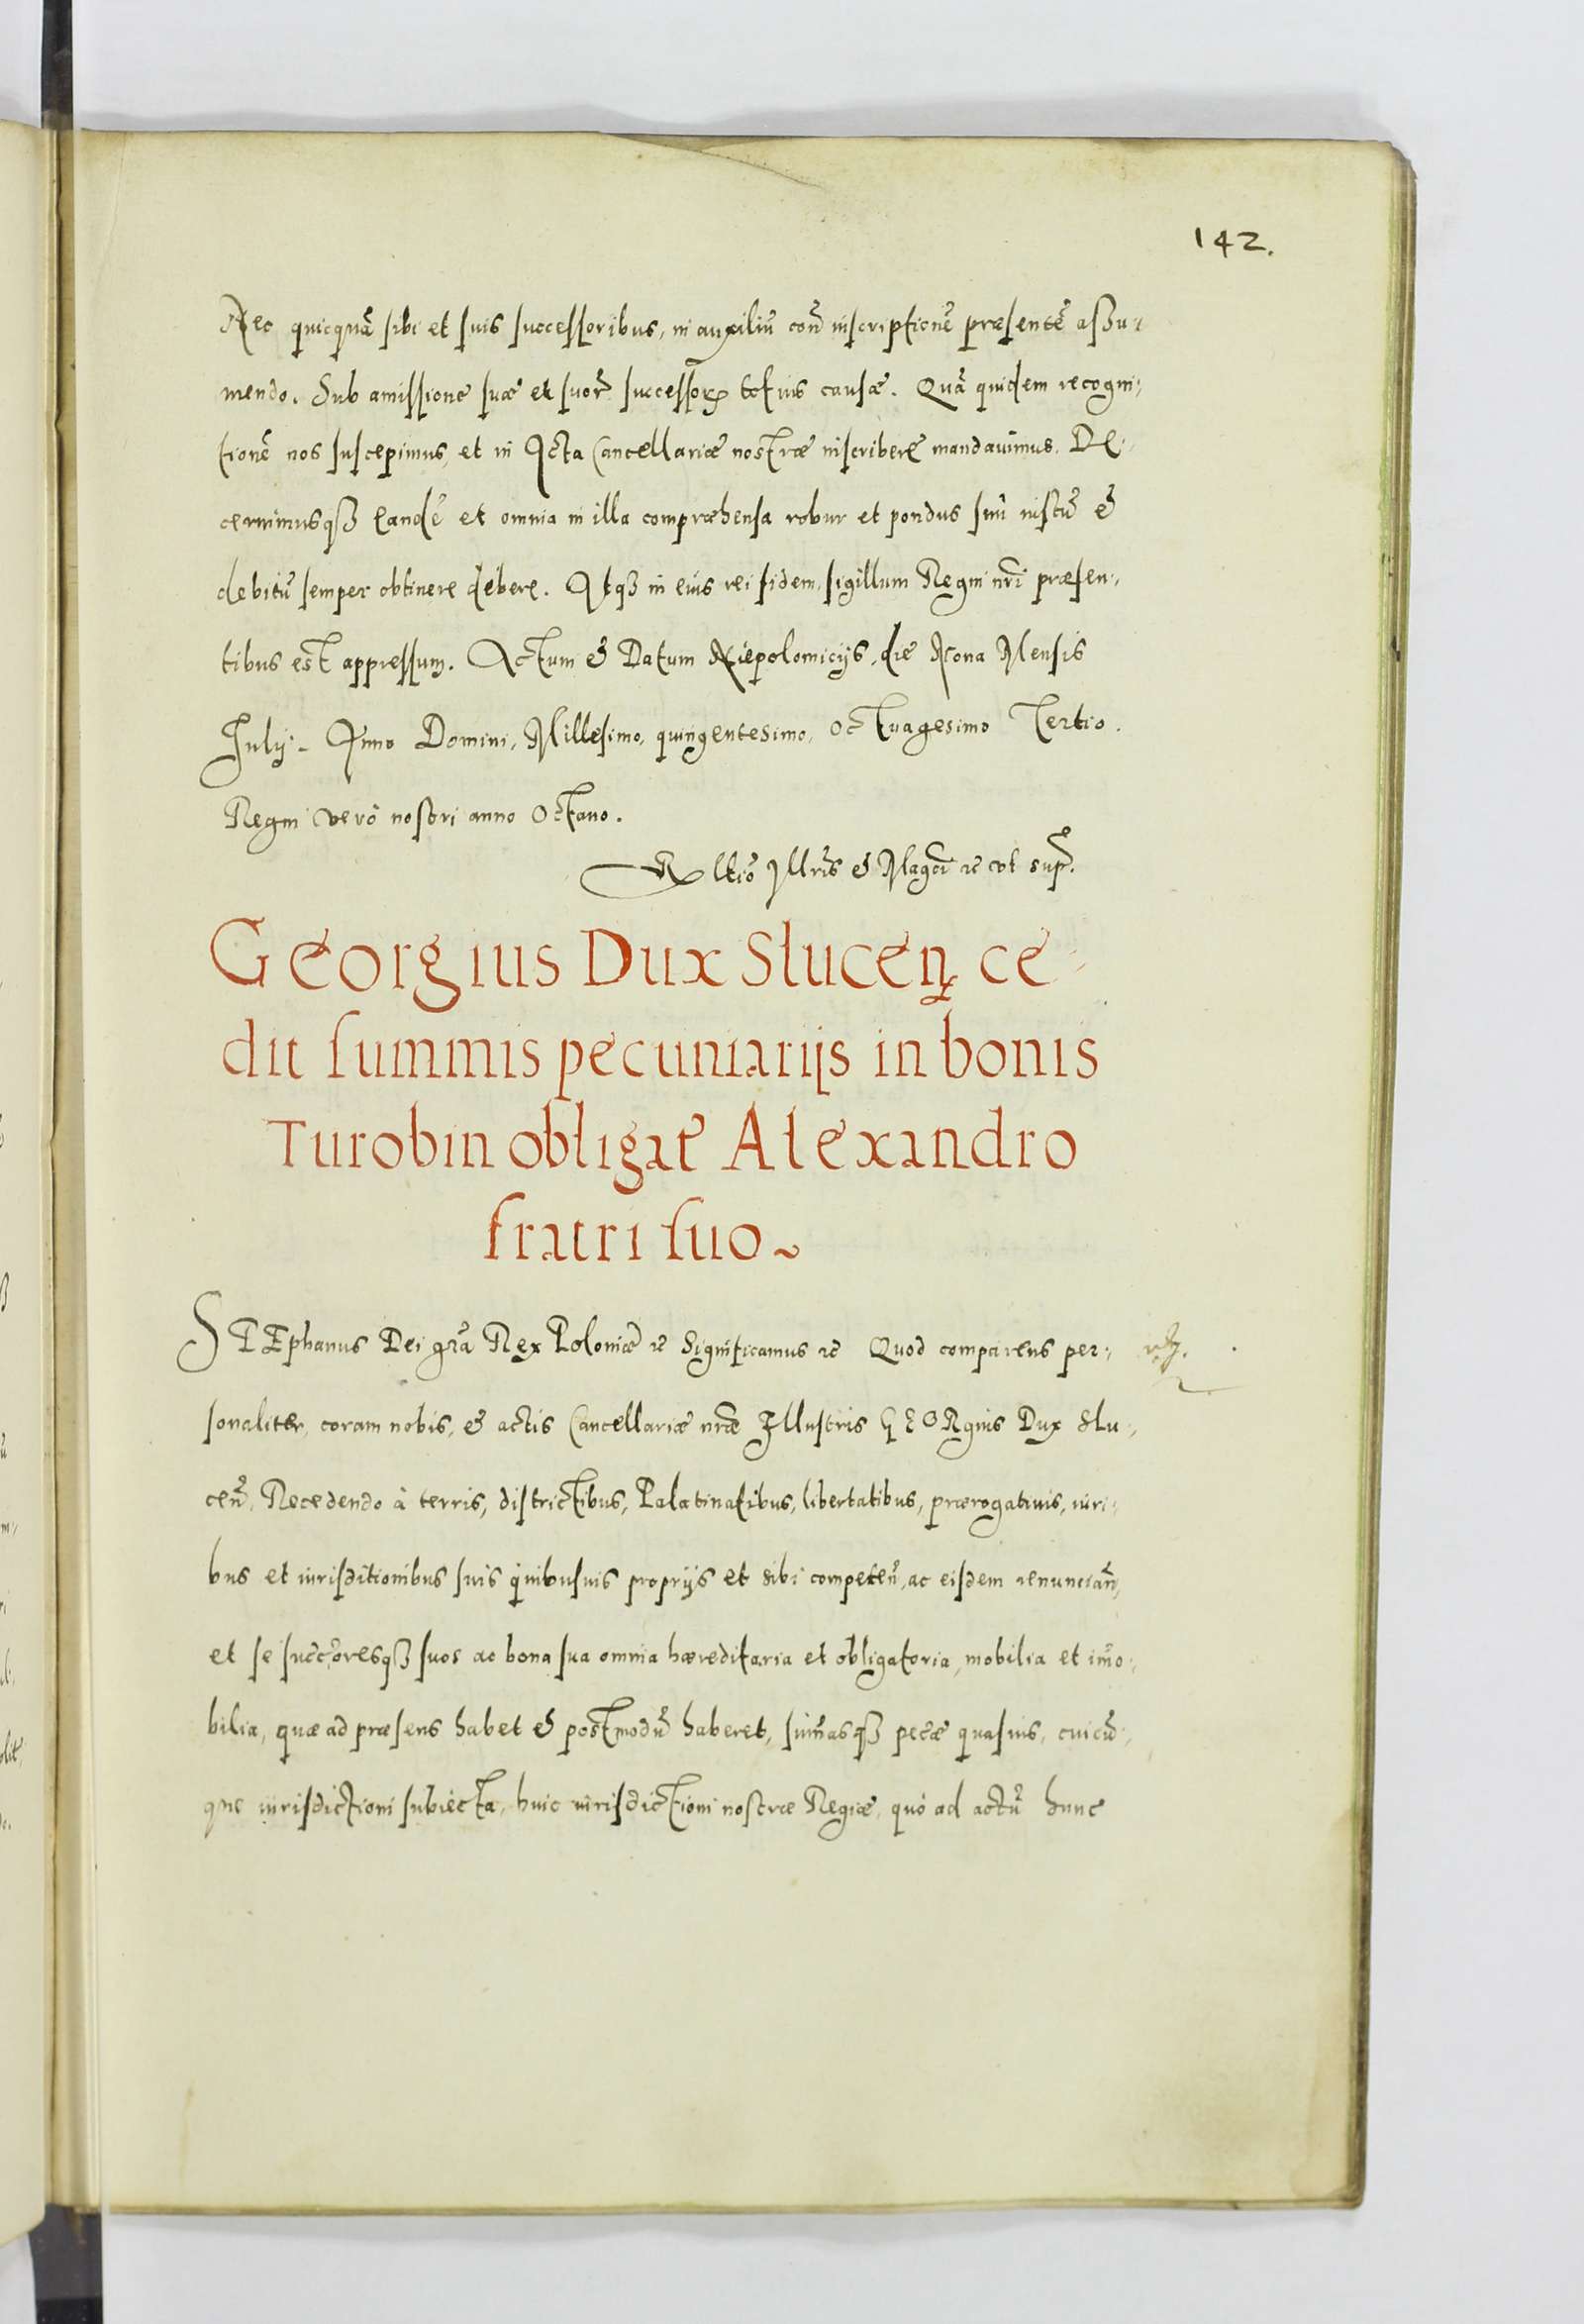 142.
Nec quicquã sibi et suis successoribus, in auxiliũ cond inscriptionẽ præsentẽ assu-
mendo. Sub amissione suæ et suor successorꝝ totius causæ. Quã quidem recogni-
tionẽ nos suscepimus, et in Acta Cancellariæ nostræ inscribere mandavimus. De-
cernimusqȝ eandẽ et omnia in illa compræhensa robur et pondus suũ iustũ &
debitũ semper obtinere debere. Atqȝ in eius rei fidem, sigillum Regni nrĩ præsen-
tibus est appressum. Actum & Datum Niepolomicijs, die Nona Mensis
Julij. Anno Domini, Millesimo, quingentesimo, Octuagesimo Tertio.
Regni verò nostri anno Octavo.
Rltio Illris & Magci ꝛc vt sup.
Georgius Dux Slucen̄ ce-
dit summis pecuniarijs in bonis
Turobin obligat̃ Alexandro
fratri suo~
STEphanus Dei grã Rex Poloniæ ꝛc Significamus ꝛc Quod comparens per-
sonaliter, coram nobis, & actis Cancellariæ nræ Illustris GEORgius Dux Slu-
ceñ, Recedendo à terris, districtibus, Palatinatibus, libertatibus, prærogativis, iuri-
bus et iurisditionibus suis quibusuis proprijs et sibi competeñ, ac eisdem renunciañ,
et se succoresqȝ suos ac bona sua omnia hæreditaria et obligatoria, mobilia et im̃o-
bilia, quæ ad præsens habet & postmodũ haberet, sum̃asqȝ pecæ quasuis, cuicũ-
que iurisdictioni subiecta, huic iurisdictioni nostræ Regiæ, quò ad actũ hunc